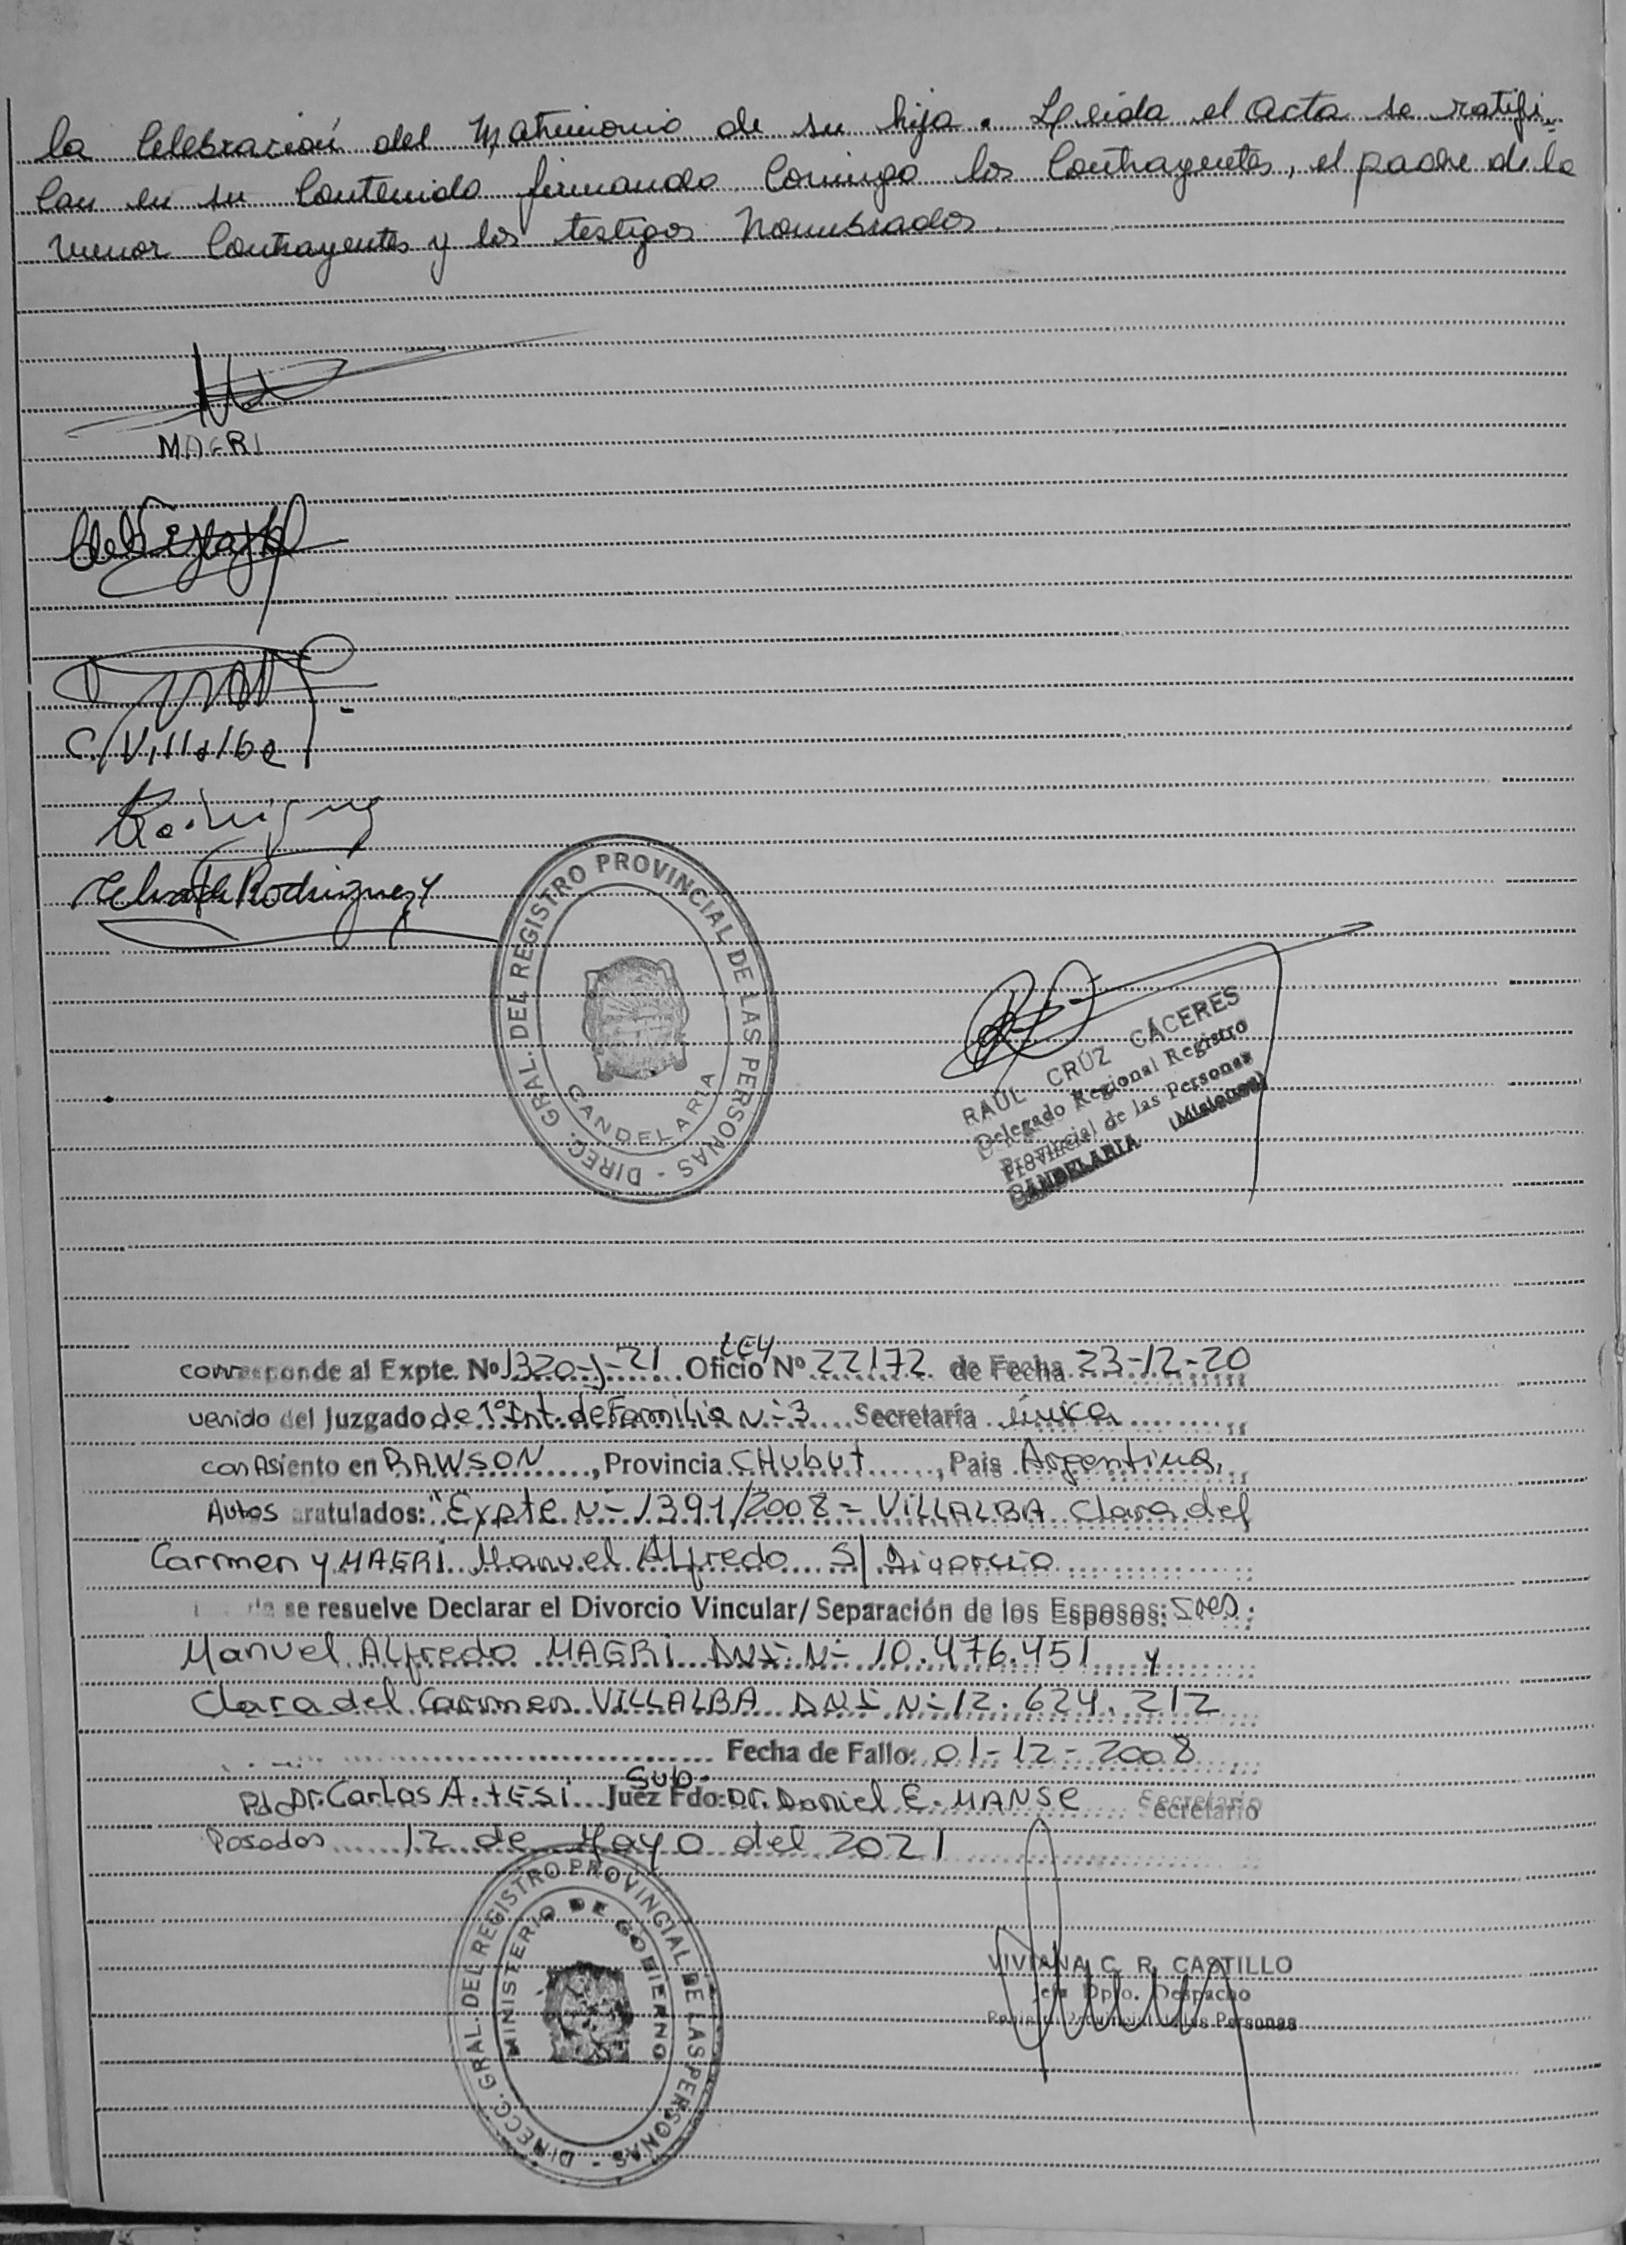 la Celebración del Matrimonio de su hija. Leída el acta se ratifi-
can en su Contenido firmando Conmigo los Contrayentes, el padre de la
menor Contrayentes y los testigos Nombrados.
MAGRI
C. Villalba
Rodriguez
de Rodriguez
DIREC. GRAL. DEL REGISTRO PROVINCIAL DE LAS PERSONAS -
CANDELARIA
RAÚL CRÚZ CÁCERES
Delegado Regional Registro
Provincial de las Personas
CANDELARIA (Misiones)
LEY
corresponde al Expte. Nº 1320-J-21 Oficio Nº 22172 de Fecha 23-12-20
venido del Juzgado de 1º Int. de Familia N-3 Secretaría única
con Asiento en RAWSON, Provincia CHubut, Pais Argentina,
Autos aratulados: "Expte N- 1391/2008 - VILLALBA Clara del
Carmen y MAGRI Manuel Alfredo S/ Divorcio
se resuelve Declarar el Divorcio Vincular/ Separación de los Esposos: Sres.
Manuel Alfredo MAGRI DNI N- 10.476.451 y
Clara del Carmen VILLALBA DNI N- 12.624.212
Fecha de Fallo: 01-12-2008
Sub.
Fdo Dr. Carlos A. TESI Juez Fdo: Dr. Daniel E. MANSE Secretario
Posadas 12 de Mayo del 2021
DIRECC. GRAL. DEL REGISTRO PROVINCIAL DE LAS PERSONAS -
MINISTERIO DE GOBIERNO
VIVIANA C. R. CASTILLO
Jefa Dpto. Despacho
Registro Provincial de las Personas